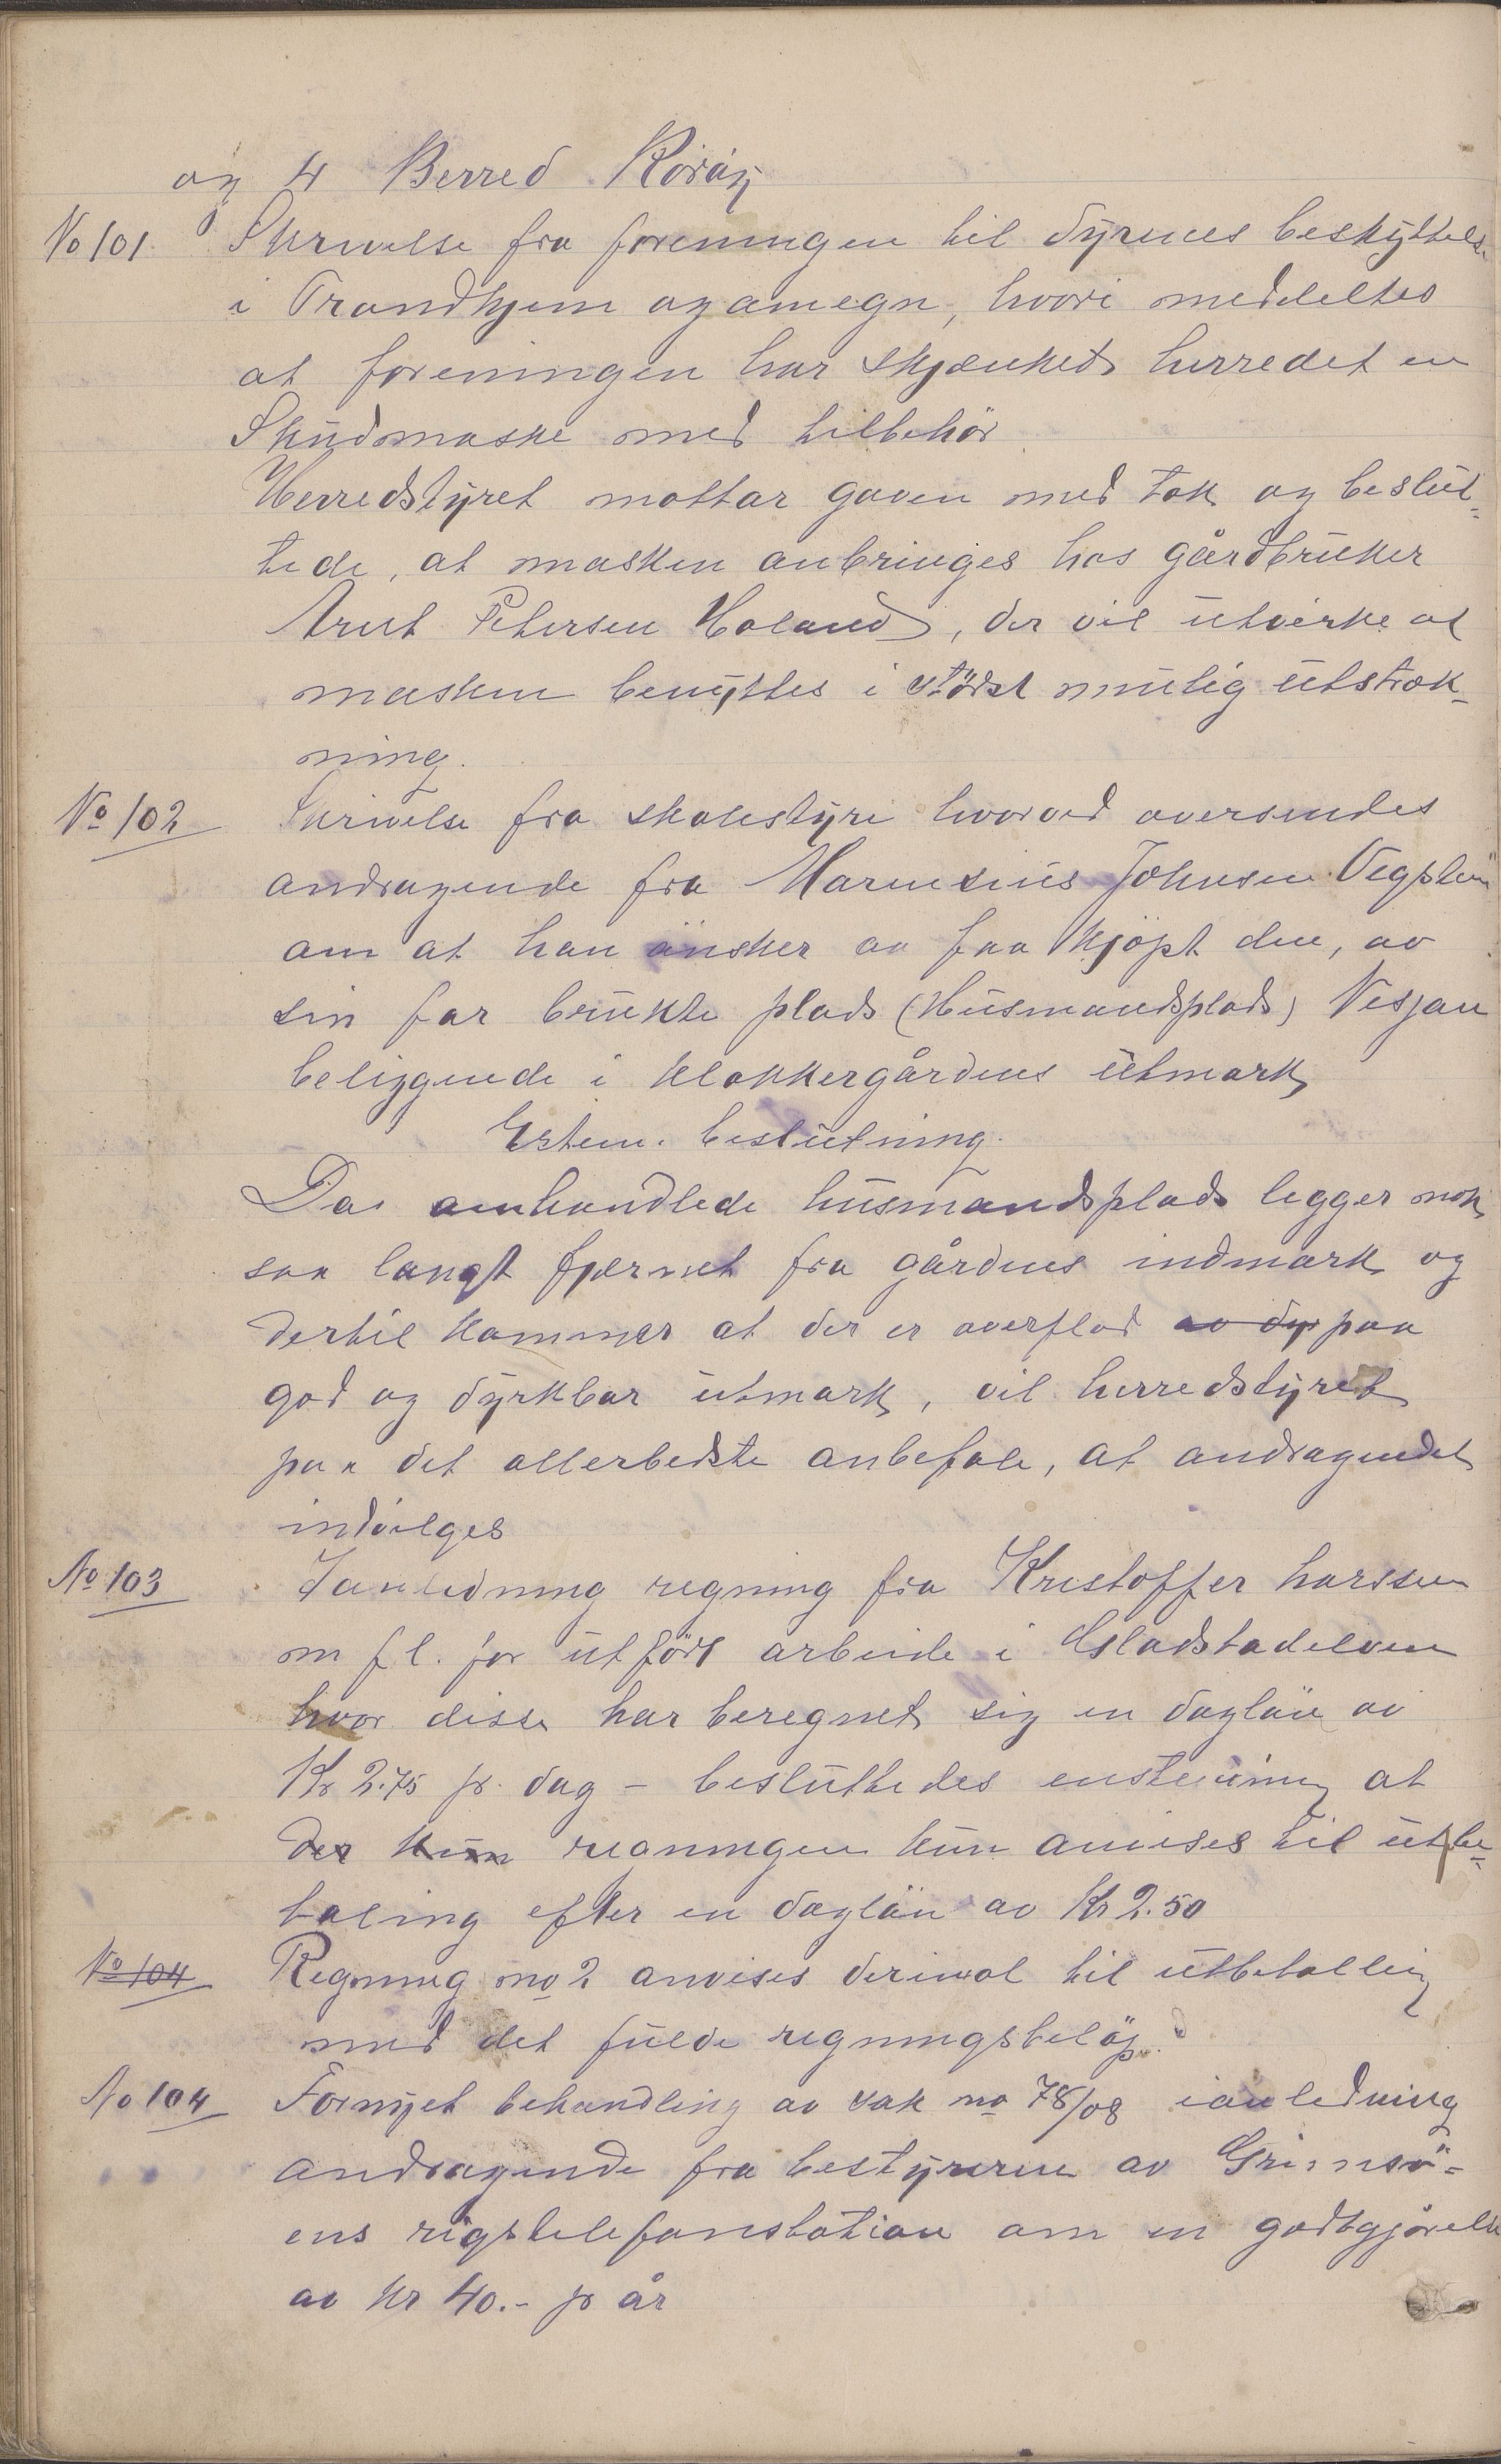 og 4 Berred Röröy
No 101 Skrivelse fra foreningen til dyrenes beskyttelse
i Trondhjem og omegn, hvori meddeltes
at foreningen har skjænket herredet en
Skudmaske med tilbehör
Herredstyret mottar gaven med tak og beslut-
tede, at masken anbringes hos gårdbruker
Arnt Petersen Holand, der vil utvirke at
masken benyttes i störst mulig utstræk-
ning.
No 102 Skrivelse fra skolestyre hvorved oversendes
andragende fra Marensius Johnsen Vegstein
om at han önsker aa faa kjöpt den, av
sin far brukte plads (Husmandsplads) Vesjan
beliggende i klokkergårdens utmark
Estem. beslutning.
Da omhandlede husmandsplads legger nok
saa langt fjernet fra gårdens indmark og
dertil kommer at der er overflod av dy paa
god og dyrkbar utmark, vil herredstyret
paa det allerbedste anbefale, at andragendet
indvilges
No 103 Ianledning regning fra Kristoffer Larssen
m fl. for utfört arbeide i Gladstadelven
hvor disse har beregnet sig en daglön av
Kr 2.75 pr. dag - besluttedes enstemmig at
der kun regningen kun anvises til utbe-
taling efter en daglön av Kr 2.50
No 104 Regning no 2 anvises derimot til utbetalling
med det fulde regningsbelöp.
No 104 Fornyet behandling av sak no 78/08 ianledning
andragende fra bestyreren av Grimsö-
ens rigstelefonstation om en godtgjörelse
av Kr 40.- pr år